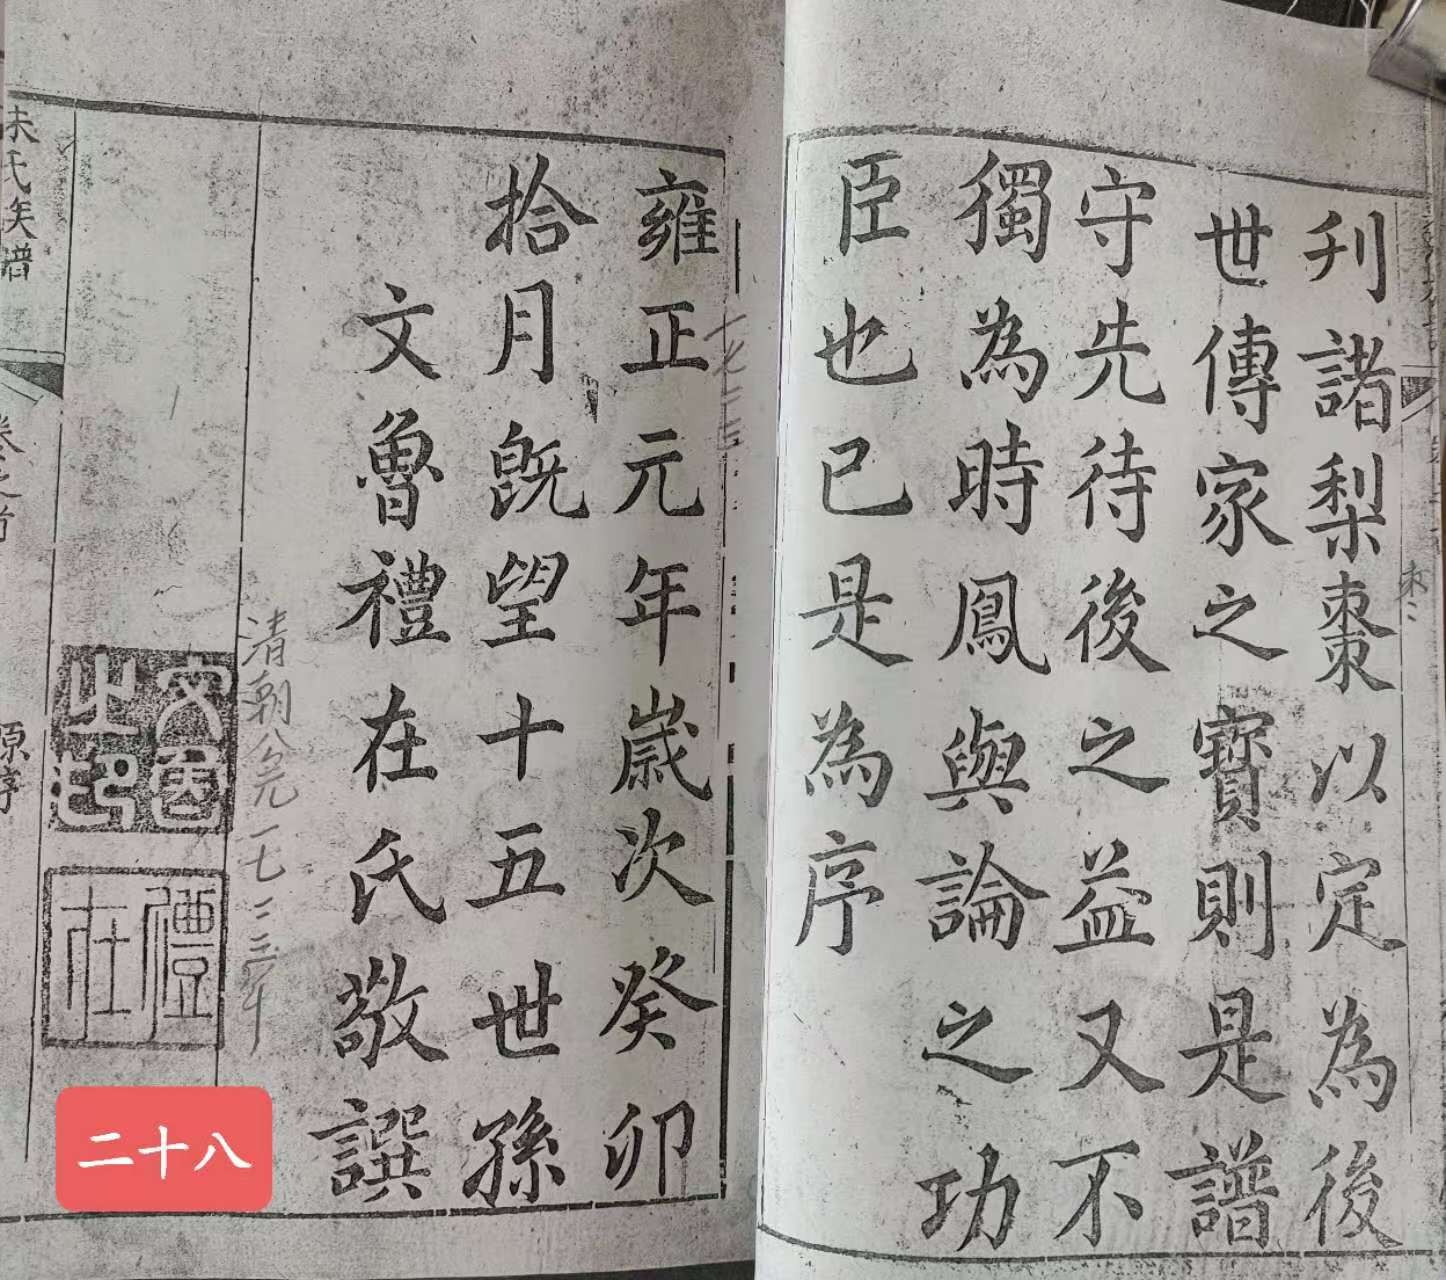 刋諸梨棗以定為後
世傳家之寶則是譜
守先待後之益又不
獨為時鳳與論之功
臣也已是為序
棗
一七二三
雍正元年歲次癸卯
拾月旣望十五世孫
文魯禮在氏敬譔
清朝公元一七二三年
文魯
之印
禮在
朱氏族譜
卷之首
原序
二十八